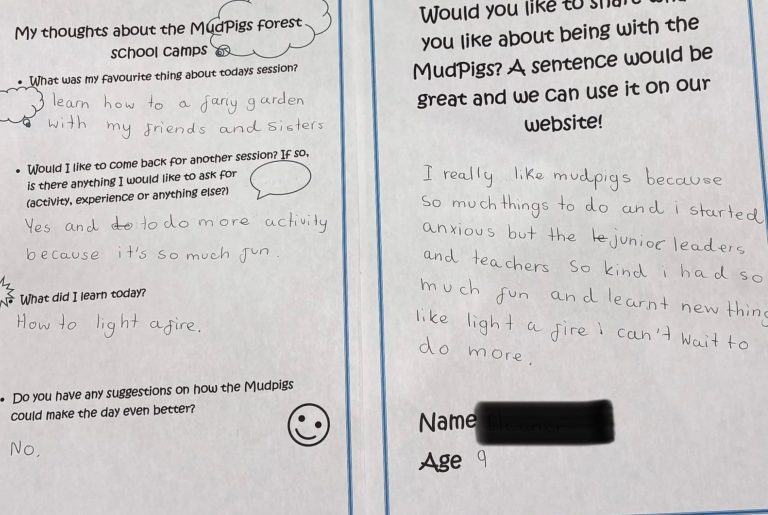 My thoughts about the MudPigs forest
school camps
• What was my favourite thing about todays session?
learn how to a fariy garden
with my friends and sisters
• Would I like to come back for another session? If so,
is there anything I would like to ask for
(activity, experience or anything else?)
Yes and do to do more activity
because it's so much fun.
• What did I learn today?
How to light a fire.
• Do you have any suggestions on how the Mudpigs
could make the day even better?
No.
Would you like to
you like about being with the
MudPigs? A sentence would be
great and we can use it on our
website!
I really like mudpigs because
so much things to do and i started
anxious but the le junior leaders
and teachers so kind i had so
much fun and learnt new thing
like light a fire i can't wait to
do more.
Name
Age 9